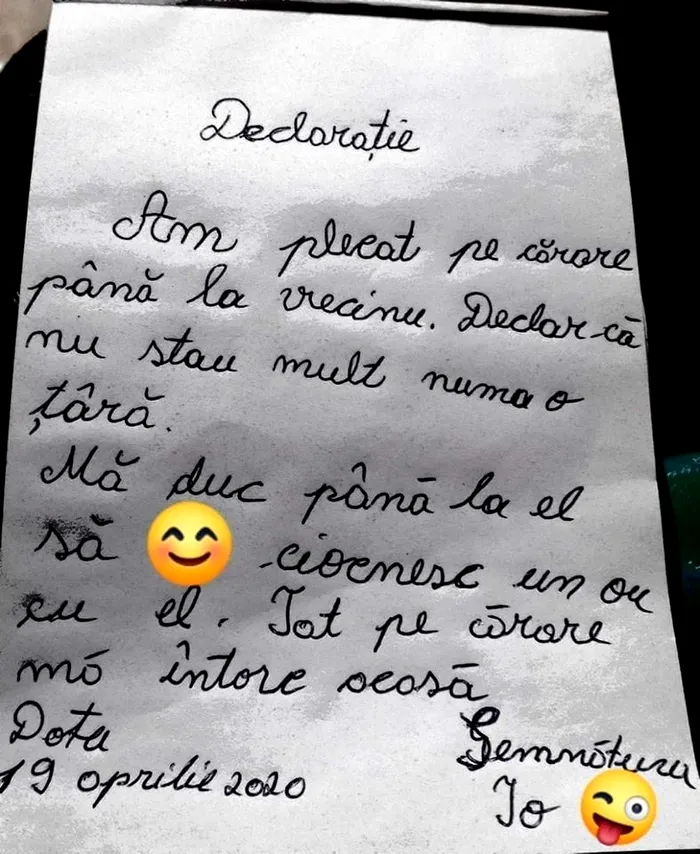 Declarație
Am plecat pe cărare
până la vecinu. Declar că
nu stau mult numa o
țâră.
Mă duc până la el
să 😊 ciocnesc un ou
cu el. Tot pe cărare
mă întorc acasă
Data
19 aprilie 2020
Semnătura
Io 😜